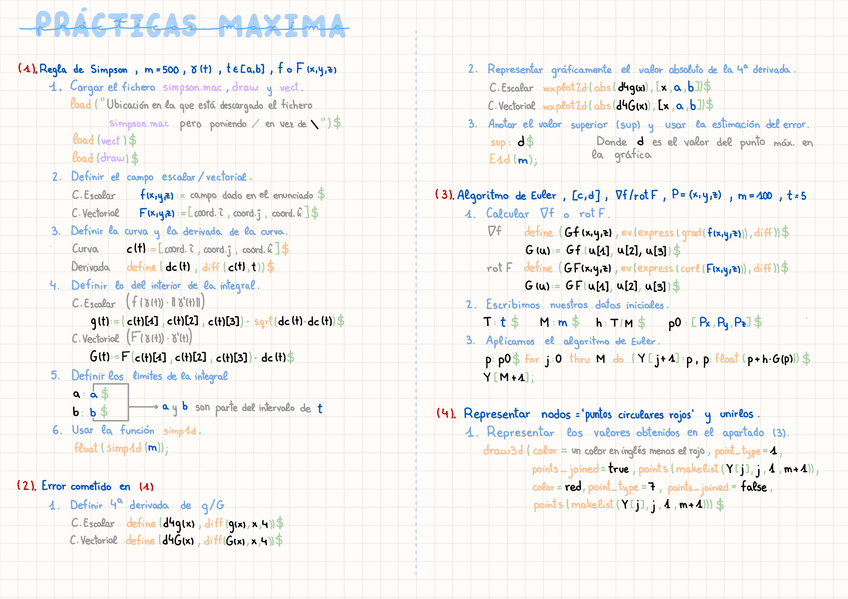 PRÁCTICAS MAXIMA
prácticas maxima
(1). Regla de Simpson , m=500 , γ(t) , t∈[a,b] , f o F (x,y,z)
1. Cargar el fichero simpson.mac , draw y vect .
load ("Ubicación en la que está descargado el fichero
simpson.mac pero poniendo / en vez de \")$
load (vect)$
load (draw)$
2. Definir el campo escalar/vectorial .
C. Escalar f(x,y,z) := campo dado en el enunciado $
C. Vectorial F(x,y,z) := [coord. i , coord. j , coord. k]$
3. Definir la curva y la derivada de la curva.
Curva c(t) := [coord. i , coord. j , coord. k]$
Derivada define (dc(t) , diff (c(t), t))$
4. Definir lo del interior de la integral .
C. Escalar (f(γ(t)) · ||γ'(t)||)
g(t) := (c(t)[1] , c(t)[2] , c(t)[3]) · sqrt(dc(t)·dc(t))$
C. Vectorial (F(γ(t)) · γ'(t))
G(t) := F(c(t)[1] , c(t)[2] , c(t)[3]) · dc(t)$
5. Definir los límites de la integral
a : a $
b : b $
a y b son parte del intervalo de t
6. Usar la función simp1d .
float (simp1d (m));
(2). Error cometido en (1)
1. Definir 4ª derivada de g/G
C. Escalar define (d4g(x) , diff(g(x), x, 4))$
C. Vectorial define (d4G(x) , diff(G(x), x, 4))$
2. Representar gráficamente el valor absoluto de la 4ª derivada .
C. Escalar wxplot2d (abs(d4g(x)), [x, a, b])$
C. Vectorial wxplot2d (abs(d4G(x)), [x, a, b])$
3. Anotar el valor superior (sup) y usar la estimación del error.
sup : d $ Donde d es el valor del punto máx. en
E1d (m); la gráfica
(3). Algoritmo de Euler , [c,d] , ∇f/rot F , P=(x,y,z) , m=100 , t=5
1. Calcular ∇f o rot F .
∇f define (Gf(x,y,z) , ev(express(grad(f(x,y,z))), diff))$
G(u) := Gf(u[1], u[2], u[3])$
rot F define (GF(x,y,z) , ev(express(curl(F(x,y,z))), diff))$
G(u) := GF(u[1], u[2], u[3])$
2. Escribimos nuestros datos iniciales .
T : t $ M : m $ h : T/M $ p0 : [Px, Py, Pz]$
3. Aplicamos el algoritmo de Euler .
p : p0$ for j:0 thru M do (Y[j+1] : p , p : float(p+h·G(p))$
Y[M+1];
(4). Representar nodos ='puntos circulares rojos' y unirlos .
1. Representar los valores obtenidos en el apartado (3).
draw3d (color = un color en inglés menos el rojo , point_type = 1 ,
points_joined = true , points (makelist (Y[j], j , 1 , m+1)) ,
color = red, point_type = 7 , points_joined = false ,
points (makelist (Y[j], j , 1 , m+1)))$